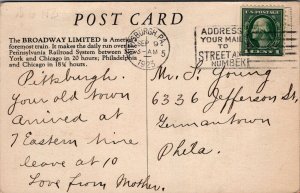 POST CARD
The BROADWAY LIMITED is America's
foremost train. It makes the daily run over the
Pennsylvania Railroad System between New
York and Chicago in 20 hours; Philadelphia
and Chicago in 18¾ hours.
PITTSBURGH, PA.
SEP 9
3-AM
1925
ADDRESS
YOUR MAIL
TO
STREET AND
NUMBER
Pittsburgh.
Your old town
arrived at
7 Eastern time
leave at 10
Love from Mother.
Young
6336 Jefferson St.
Germantown
Phila.